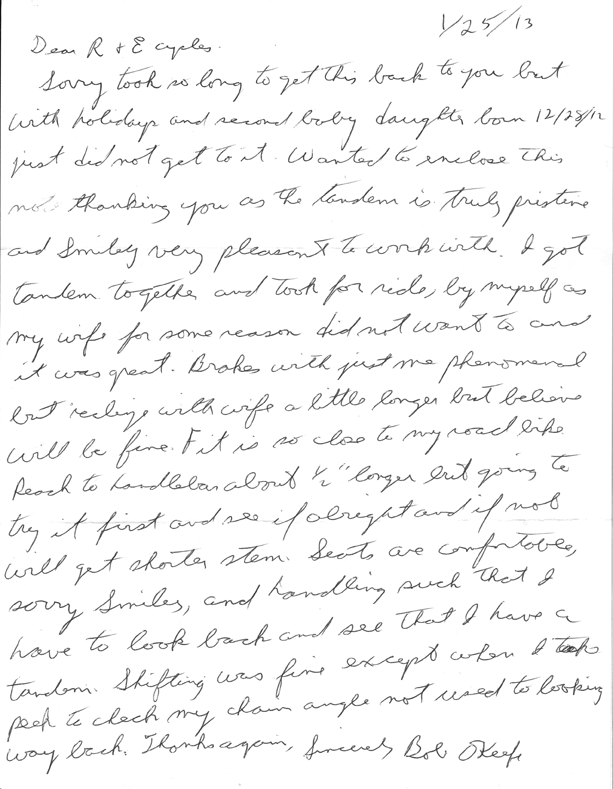 1/25/13
Dear R & E cycles.
Sorry took so long to get this back to you but
with holidays and second baby daughter born 12/28/12
just did not get to it. Wanted to enclose this
note thanking you as the tandem is truly pristine
and Smiley very pleasant to work with. I got
tandem together and took for ride, by myself as
my wife for some reason did not want to and
it was great. Brakes with just me phenomenal
but realize with wife a little longer but believe
will be fine. Fit is so close to my road bike
Reach to handlebar about 1/2" longer but going to
try it first and see if alright and if not
will get shorter stem. Seats are comfortable,
sorry Smiley, and handling such that I
have to look back and see that I have a
tandem. Shifting was fine except when I took
peek to check my chain angle not used to looking
way back. Thanks again, Sincerely Bob O'Keefe